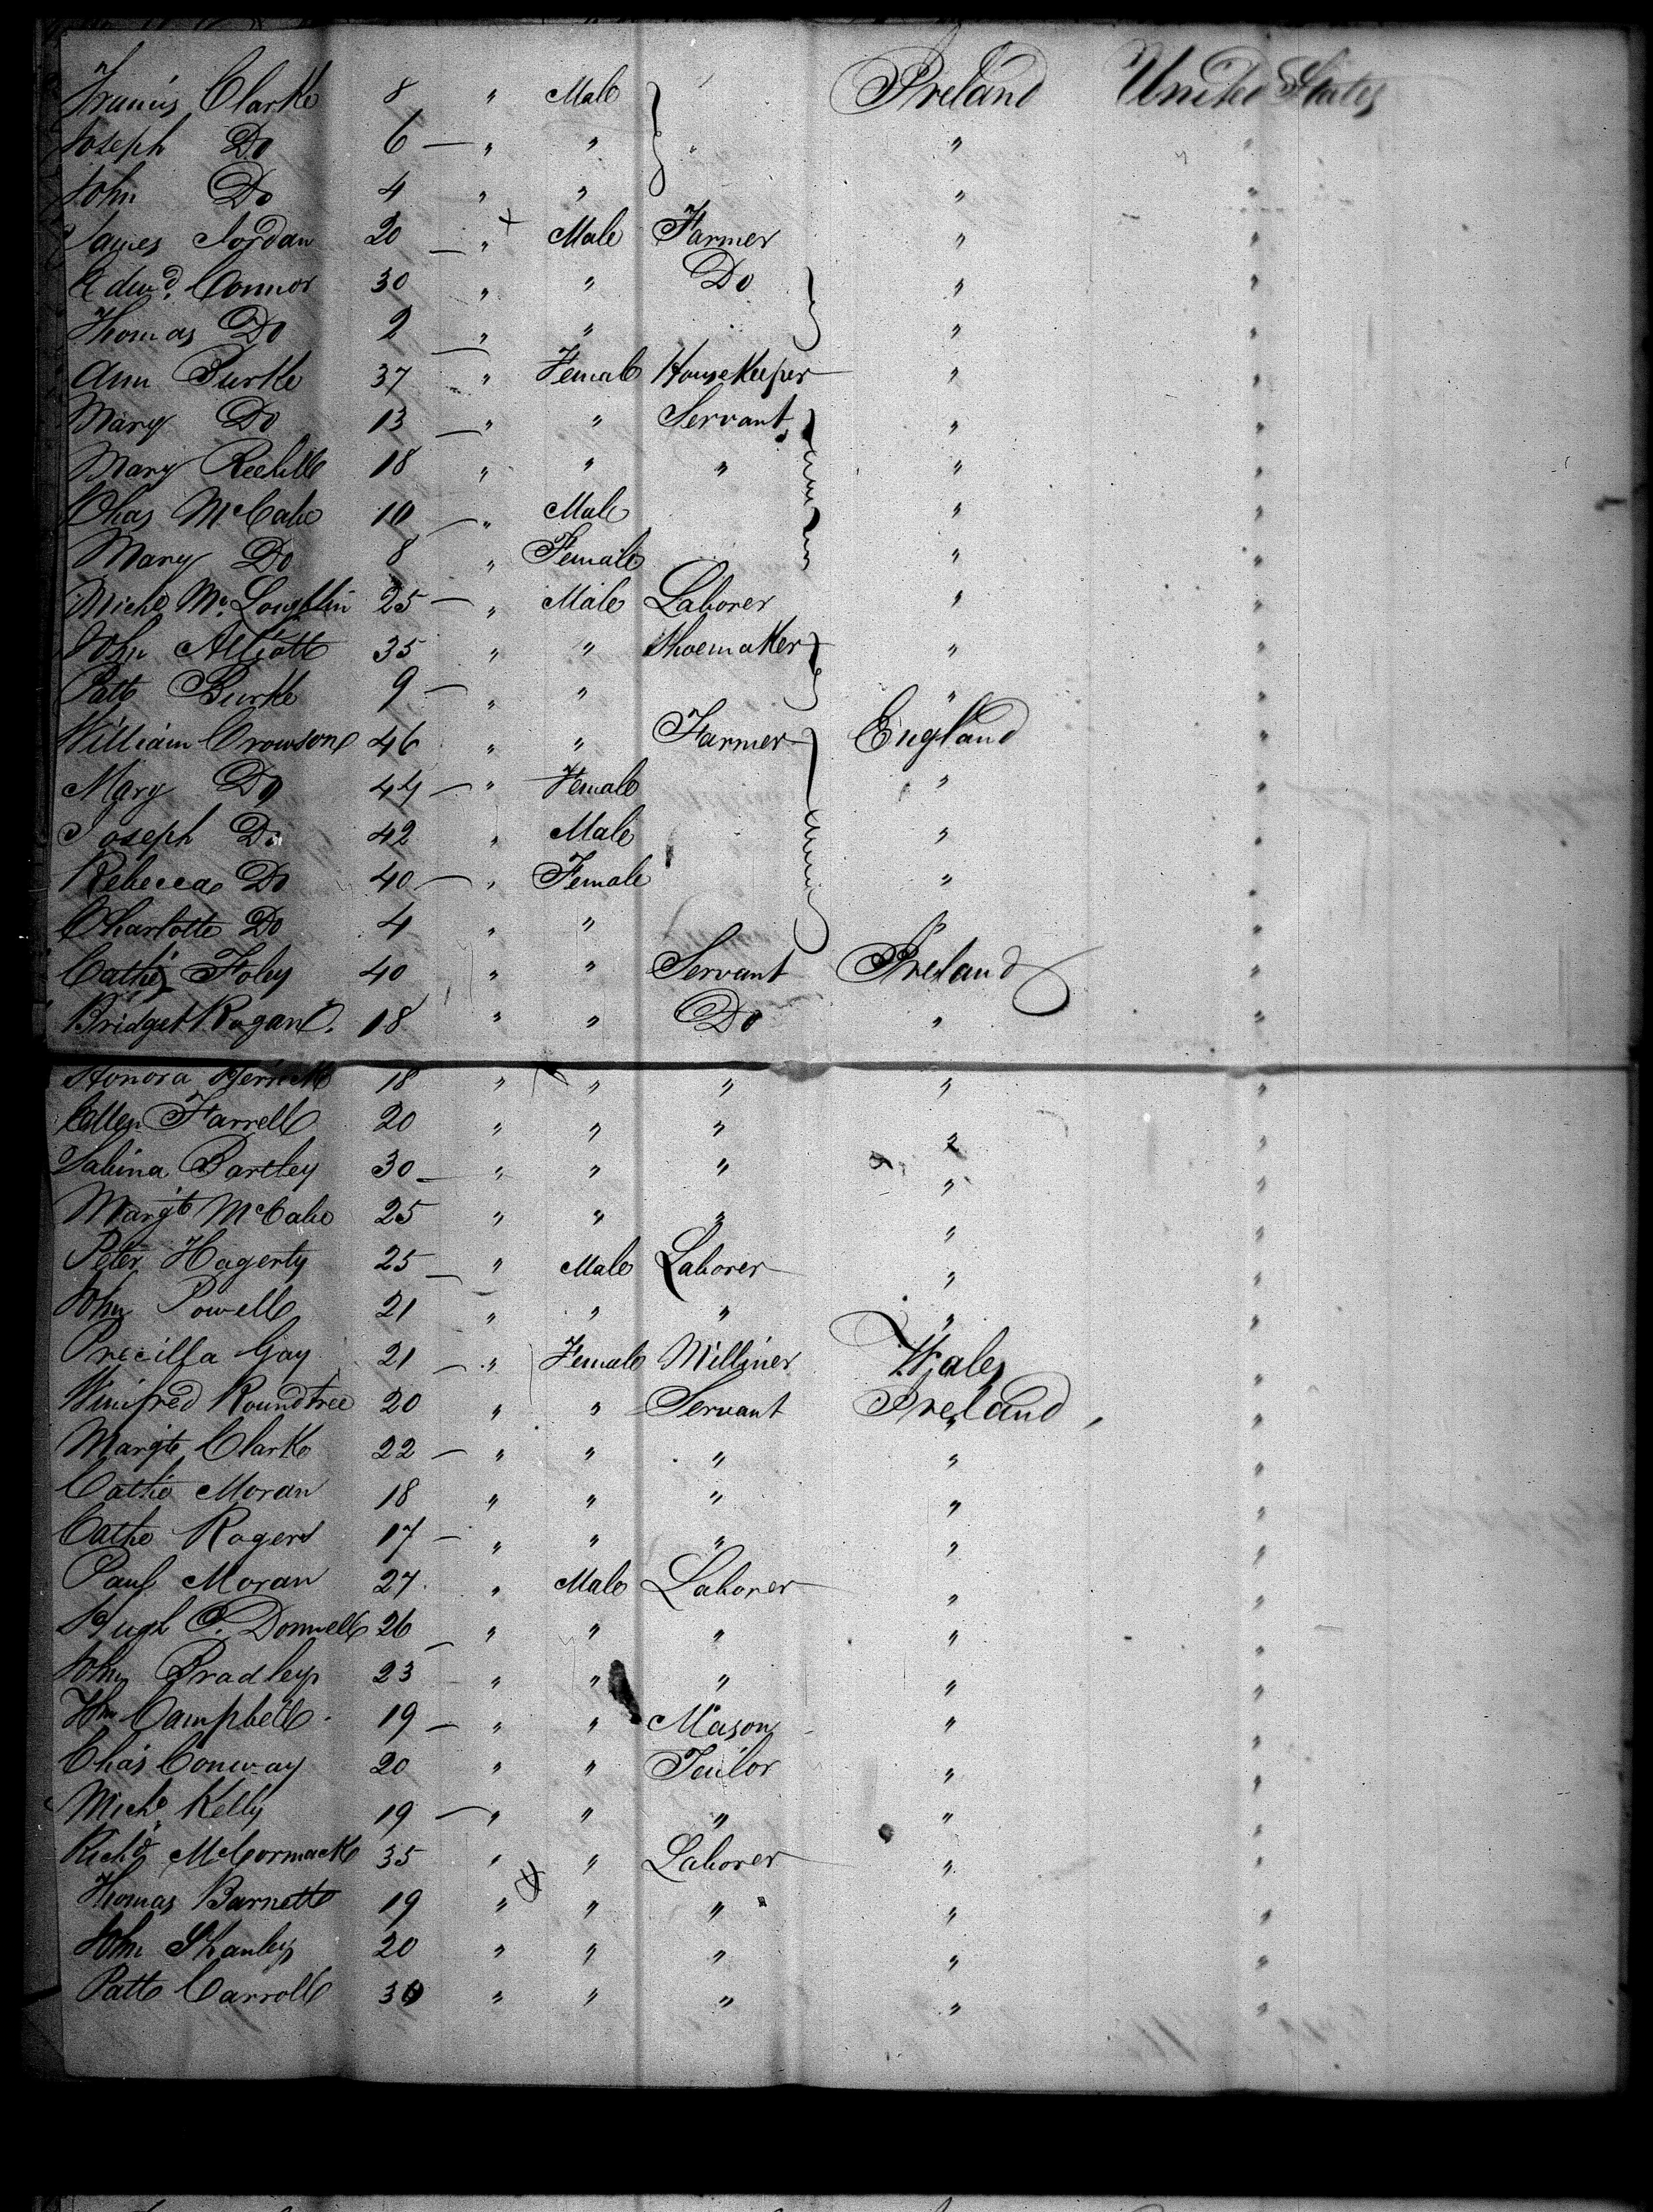 Francis Clarke 8 " Male Ireland United States
Joseph Do 6 — " " " " "
John Do 4 " " " "
James Jordan 20 — " Male Farmer " "
Edwd. Connor 30 " " Do " "
Thomas Do 2 " " " "
Ann Burke 37 — " Female Housekeeper " "
Mary Do 13 — " " Servant " "
Mary 18 " " " " "
Chas McCabe 10 — " Male " "
Mary Do 8 " Female " "
Michl McLoughlin 25 — " Male Laborer " "
John Alliott 35 " " Shoemaker " "
Patt Burke 9 — " " " "
William Crowson 46 " " Farmer England "
Mary Do 44 — " Female " "
Joseph Do 42 " Male " "
Rebecca Do 40 — " Female " "
Charlotte Do 4 " " " "
Cathe Foley 40 " " Servant Ireland "
Bridget Rogan 18 " " Do " "
Honora 18 " " " " "
Ellen Farrell 20 " " " " "
Sabina Bartley 30 — " " " " "
Margt McCabe 25 " " " " "
Peter Hagerty 25 — " Male Laborer " "
John Powell 21 " " " " "
Precilla Gay 21 — " Female Milliner Wales "
Winifred Roundtree 20 " " Servant Ireland "
Margte Clarke 22 — " " " " "
Cathe Moran 18 " " " " "
Cathe Rogers 17 — " " " " "
Paul Moran 27 " Male Laborer " "
Hugh O. Donnell 26 — " " " " "
John Bradley 23 " " " " "
Wm Campbell 19 — " " Mason " "
Chas Conway 20 " " Teilor " "
Michl Kelly 19 — " " " " "
Richd McCormack 35 " " Laborer " "
Thomas Barnett 19 " " " " "
John Shanley 20 " " " " "
Patt Carroll 30 " " " " "